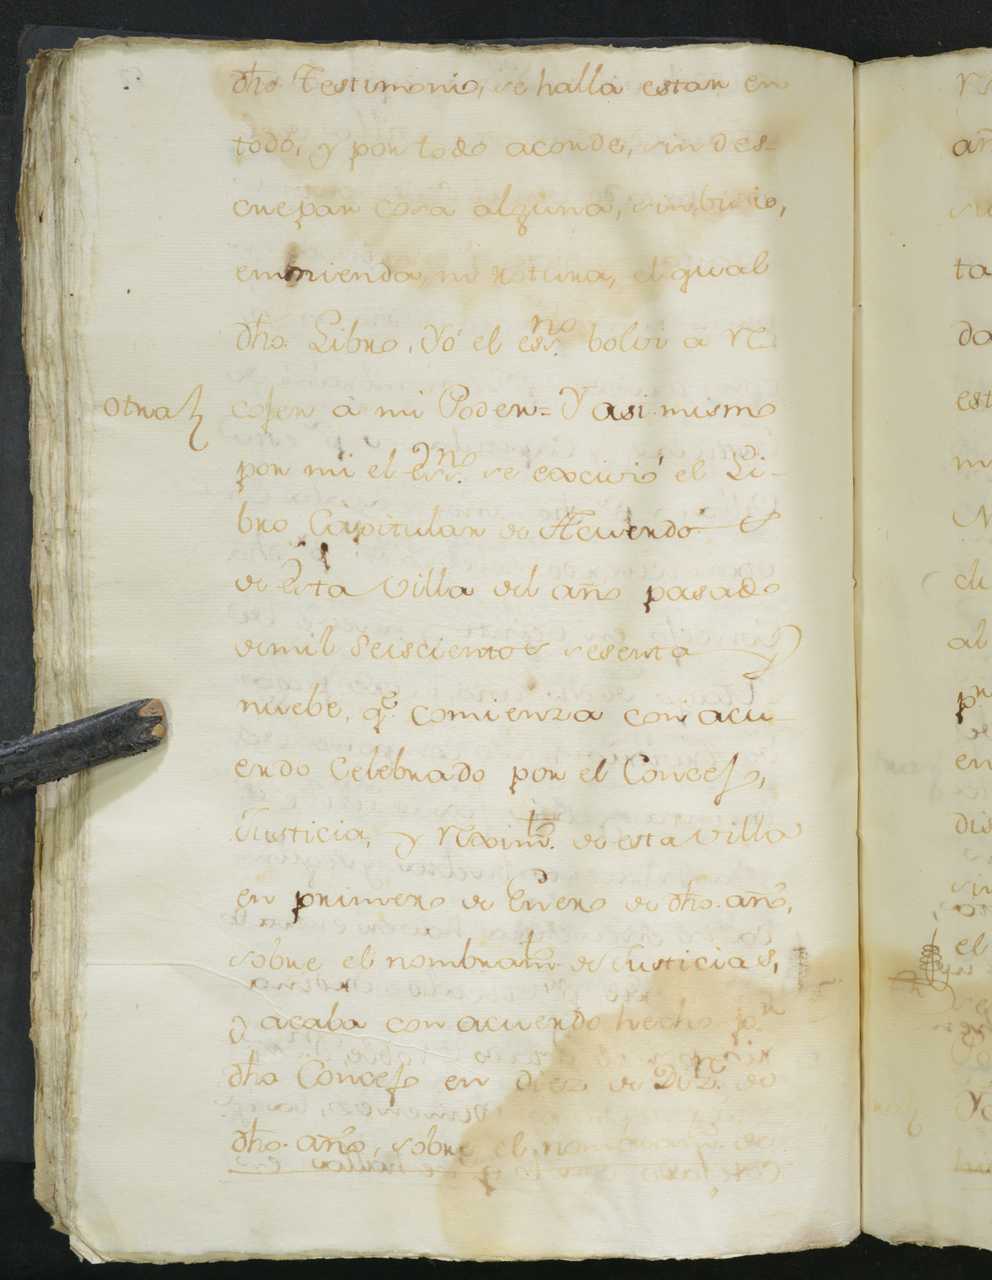 dho. Testimonio, se halla estar en
todo, y por todo acorde, sin des-
crepar cosa alguna, sin bicio,
enmienda, ni rotura, el qual
dho. Libro, Yó el essno. bolvi â re-
Otra
cojer â mi Poder = Y asi mismo
por mi el Essno. se exciviô el Li-
bro Capitular de Acuerdos
de Esta Villa del año pasado
de mil Seiscientos sesenta y
nuebe, qe. comienza con acu-
erdo Celebrado por el Concejo,
Justicia, y Reximto. de esta Villa
en primero de Enero de dho. año,
sobre el nombramto. de Justicias,
y acaba con acuerdo hecho pr.
dho Concejo en diez de Dizre. de
dho. año, sobre el